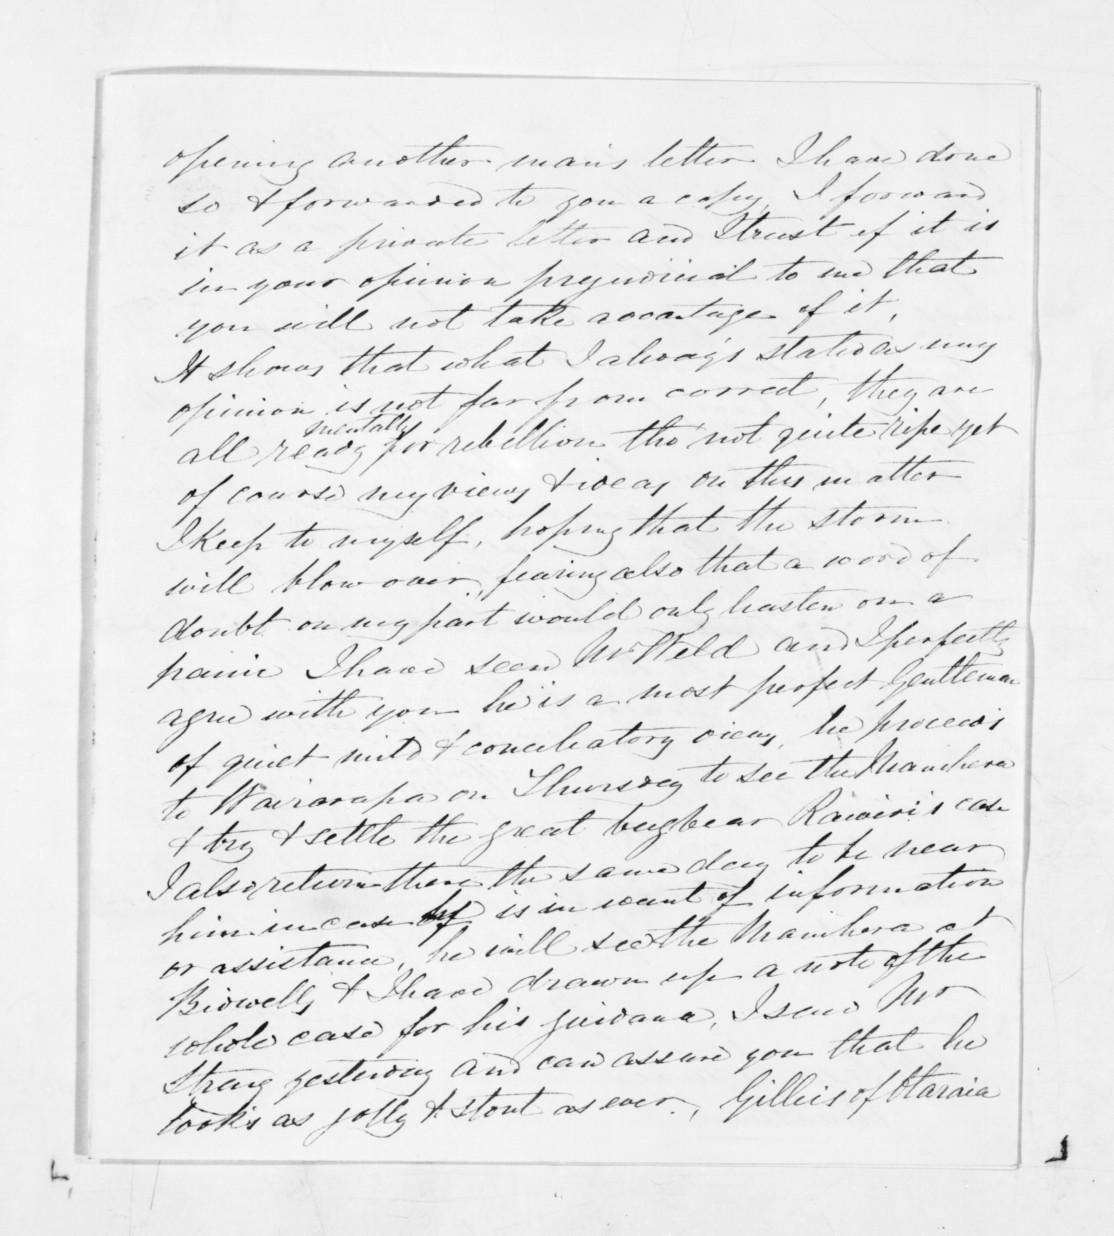 opening another man's letter I have done
so & forwarded to you a copy, I forward
it as a private letter and I trust if it is
in your opinion prejudicial to me that
you will not take advantage of it,
It shows that what I always stated as my
opinion is not far from correct, they are
all ready mentally for rebellion tho' not quite ripe yet
of course my views & ideas on this matter
I keep to myself, hoping that the storm
will blow over, fearing also that a word of
doubt on my part would only hasten on a
panic I have seen Mr Weld and I perfectly
agree with you he is a most perfect Gentleman
of quiet mild & conciliatory views, he proceeds
to Wairarapa on Thursday to see the Manihera
& try & settle the great bugbear Rawiri's case
I also return there the same day to be near
him in case he is in want of information
or assistance, he will see the Manihera at
Bidwells & I have drawn up a note of the
whole case for his guidance, I saw Mr
Strang yesterday and can assure you that he
looks as jolly & stout as ever, Gillies of Otaraia